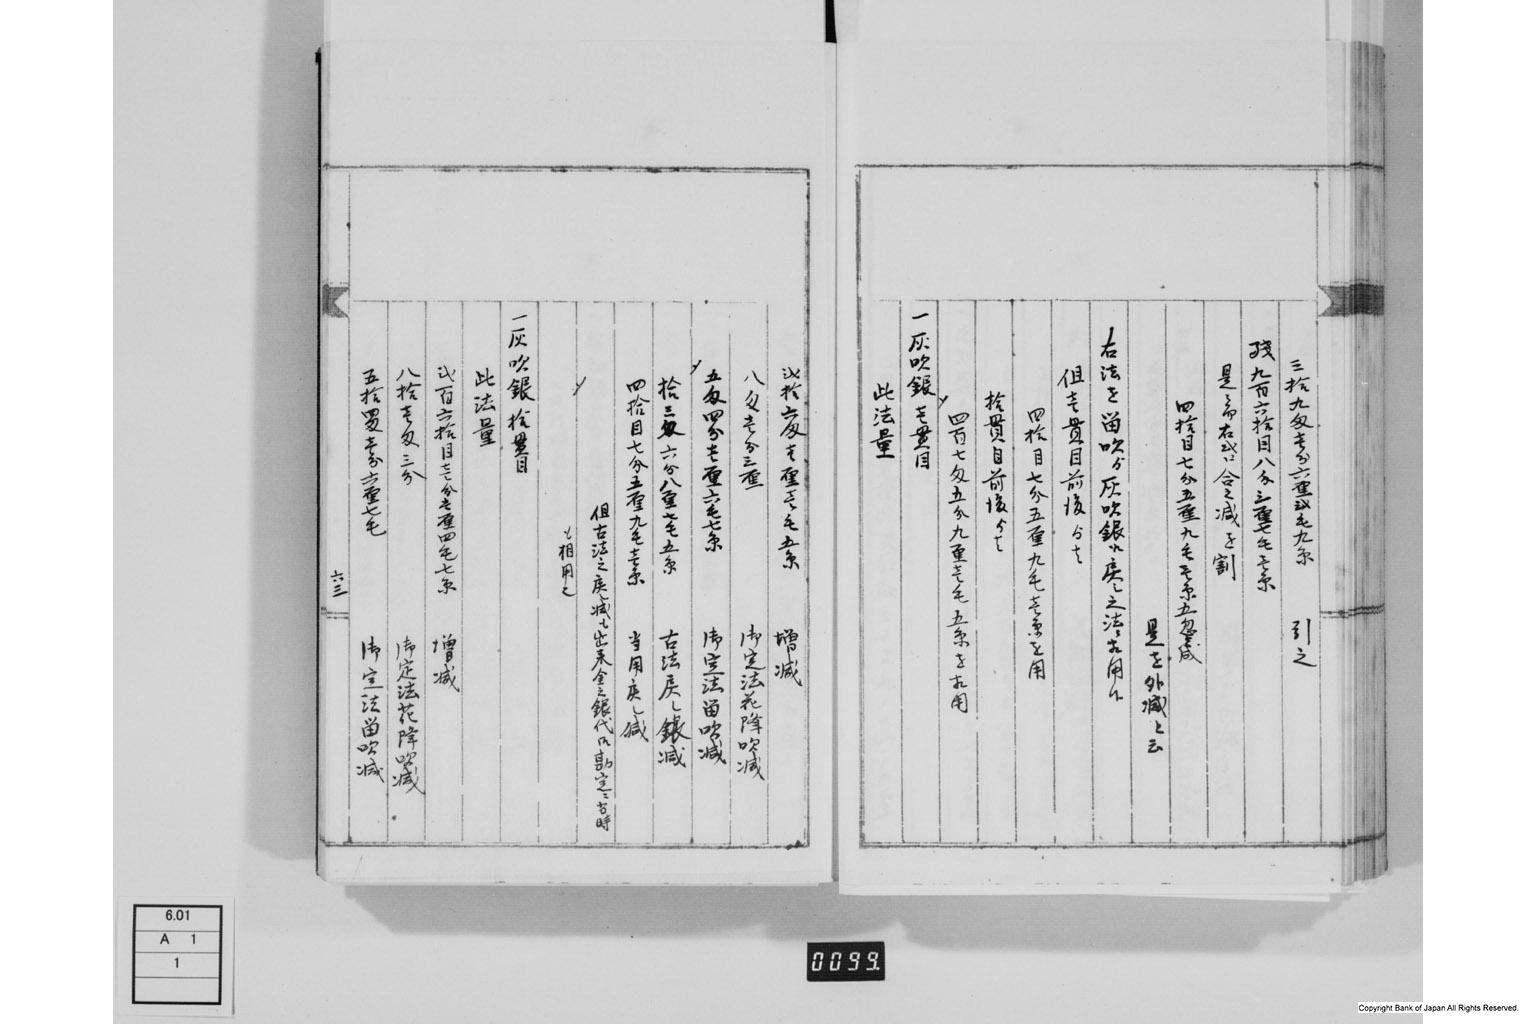 三拾九匁壱分六厘弐毛九糸 引之
残九百六拾目八分三厘七毛壱糸
是ニ而右弐口合之減を割
四拾目七分五厘九毛壱糸五忽減
是を外減と云
右法を留吹ゟ灰吹銀江戻し之法ニ相用候
但壱貫目前後ゟ者
四拾目七分五厘九毛壱糸を用
拾貫目前後ゟ者
四百七匁五分九厘壱毛五糸を相用
一灰吹銀壱貫目
此法量
弐拾六匁壱厘壱毛五糸 増減
八匁壱分三厘 御定法花降吹減
五匁四分壱厘六毛七糸 御定法留吹減
拾三匁六分八厘七毛五糸 古法戻し銀減
四拾目七分五厘九毛壱糸 当用戻し減
但古法之戻減も出来金之銀代御勘定ニ当時
も相用之
一灰吹銀拾貫目
此法量
弐百六拾目壱分壱厘四毛七糸 増減
八拾壱匁三分 御定法花降吹減
五拾四匁壱分六厘七毛 御定法留吹減
六三
6.01
A 1
1
0099
Copyright Bank of Japan All Rights Reserved.